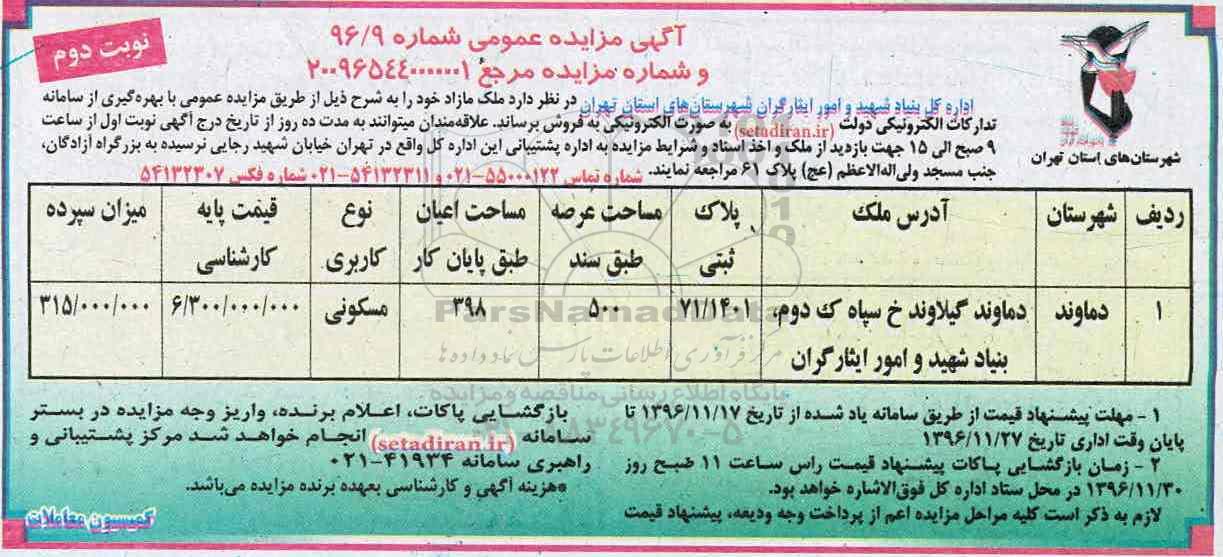 نوبت دوم
آگهی مزایده عمومی شماره ۹۶/۹
و شماره مزایده مرجع ۲۰۰۹۶۵۴۴۰۰۰۰۰۰۱
اداره کل بنیاد شهید و امور ایثارگران شهرستان‌های استان تهران در نظر دارد ملک مازاد خود را به شرح ذیل از طریق مزایده عمومی با بهره‌گیری از سامانه
تدارکات الکترونیکی دولت (setadiran.ir) به صورت الکترونیکی به فروش برساند. علاقه‌مندان میتوانند به مدت ده روز از تاریخ درج آگهی نوبت اول از ساعت
۹ صبح الی ۱۵ جهت بازدید از ملک و اخذ اسناد و شرایط مزایده به اداره پشتیبانی این اداره کل واقع در تهران خیابان شهید رجایی نرسیده به بزرگراه آزادگان،
جنب مسجد ولی‌اله‌الاعظم (عج) پلاک ۶۱ مراجعه نمایند. شماره تماس ۵۵۰۰۰۱۲۲-۰۲۱ و ۵۴۱۳۲۳۱۱-۰۲۱ شماره فکس ۵۴۱۳۲۳۰۷
شهرستان‌های استان تهران
ردیف شهرستان آدرس ملک پلاک ثبتی مساحت عرصه طبق سند مساحت اعیان طبق پایان کار نوع کاربری قیمت پایه کارشناسی میزان سپرده
۱ دماوند دماوند گیلاوند خ سپاه ک دوم، بنیاد شهید و امور ایثارگران ۷۱/۱۴۰۱ ۵۰۰ ۳۹۸ مسکونی ۶/۳۰۰/۰۰۰/۰۰۰ ۳۱۵/۰۰۰/۰۰۰
ParsNamadData
مرکز فرآوری اطلاعات پارس نماد داده ها
پایگاه اطلاع رسانی مناقصه و مزایده
۱ - مهلت پیشنهاد قیمت از طریق سامانه یاد شده از تاریخ ۱۳۹۶/۱۱/۱۷ تا
پایان وقت اداری تاریخ ۱۳۹۶/۱۱/۲۷
۲ - زمان بازگشایی پاکات پیشنهاد قیمت راس ساعت ۱۱ صبح روز
۱۳۹۶/۱۱/۳۰ در محل ستاد اداره کل فوق‌الاشاره خواهد بود.
لازم به ذکر است کلیه مراحل مزایده اعم از پرداخت وجه ودیعه، پیشنهاد قیمت
بازگشایی پاکات، اعلام برنده، واریز وجه مزایده در بستر
سامانه (setadiran.ir) انجام خواهد شد مرکز پشتیبانی و
راهبری سامانه ۴۱۹۳۴-۰۲۱
*هزینه آگهی و کارشناسی بعهده برنده مزایده می‌باشد.
کمیسیون معاملات